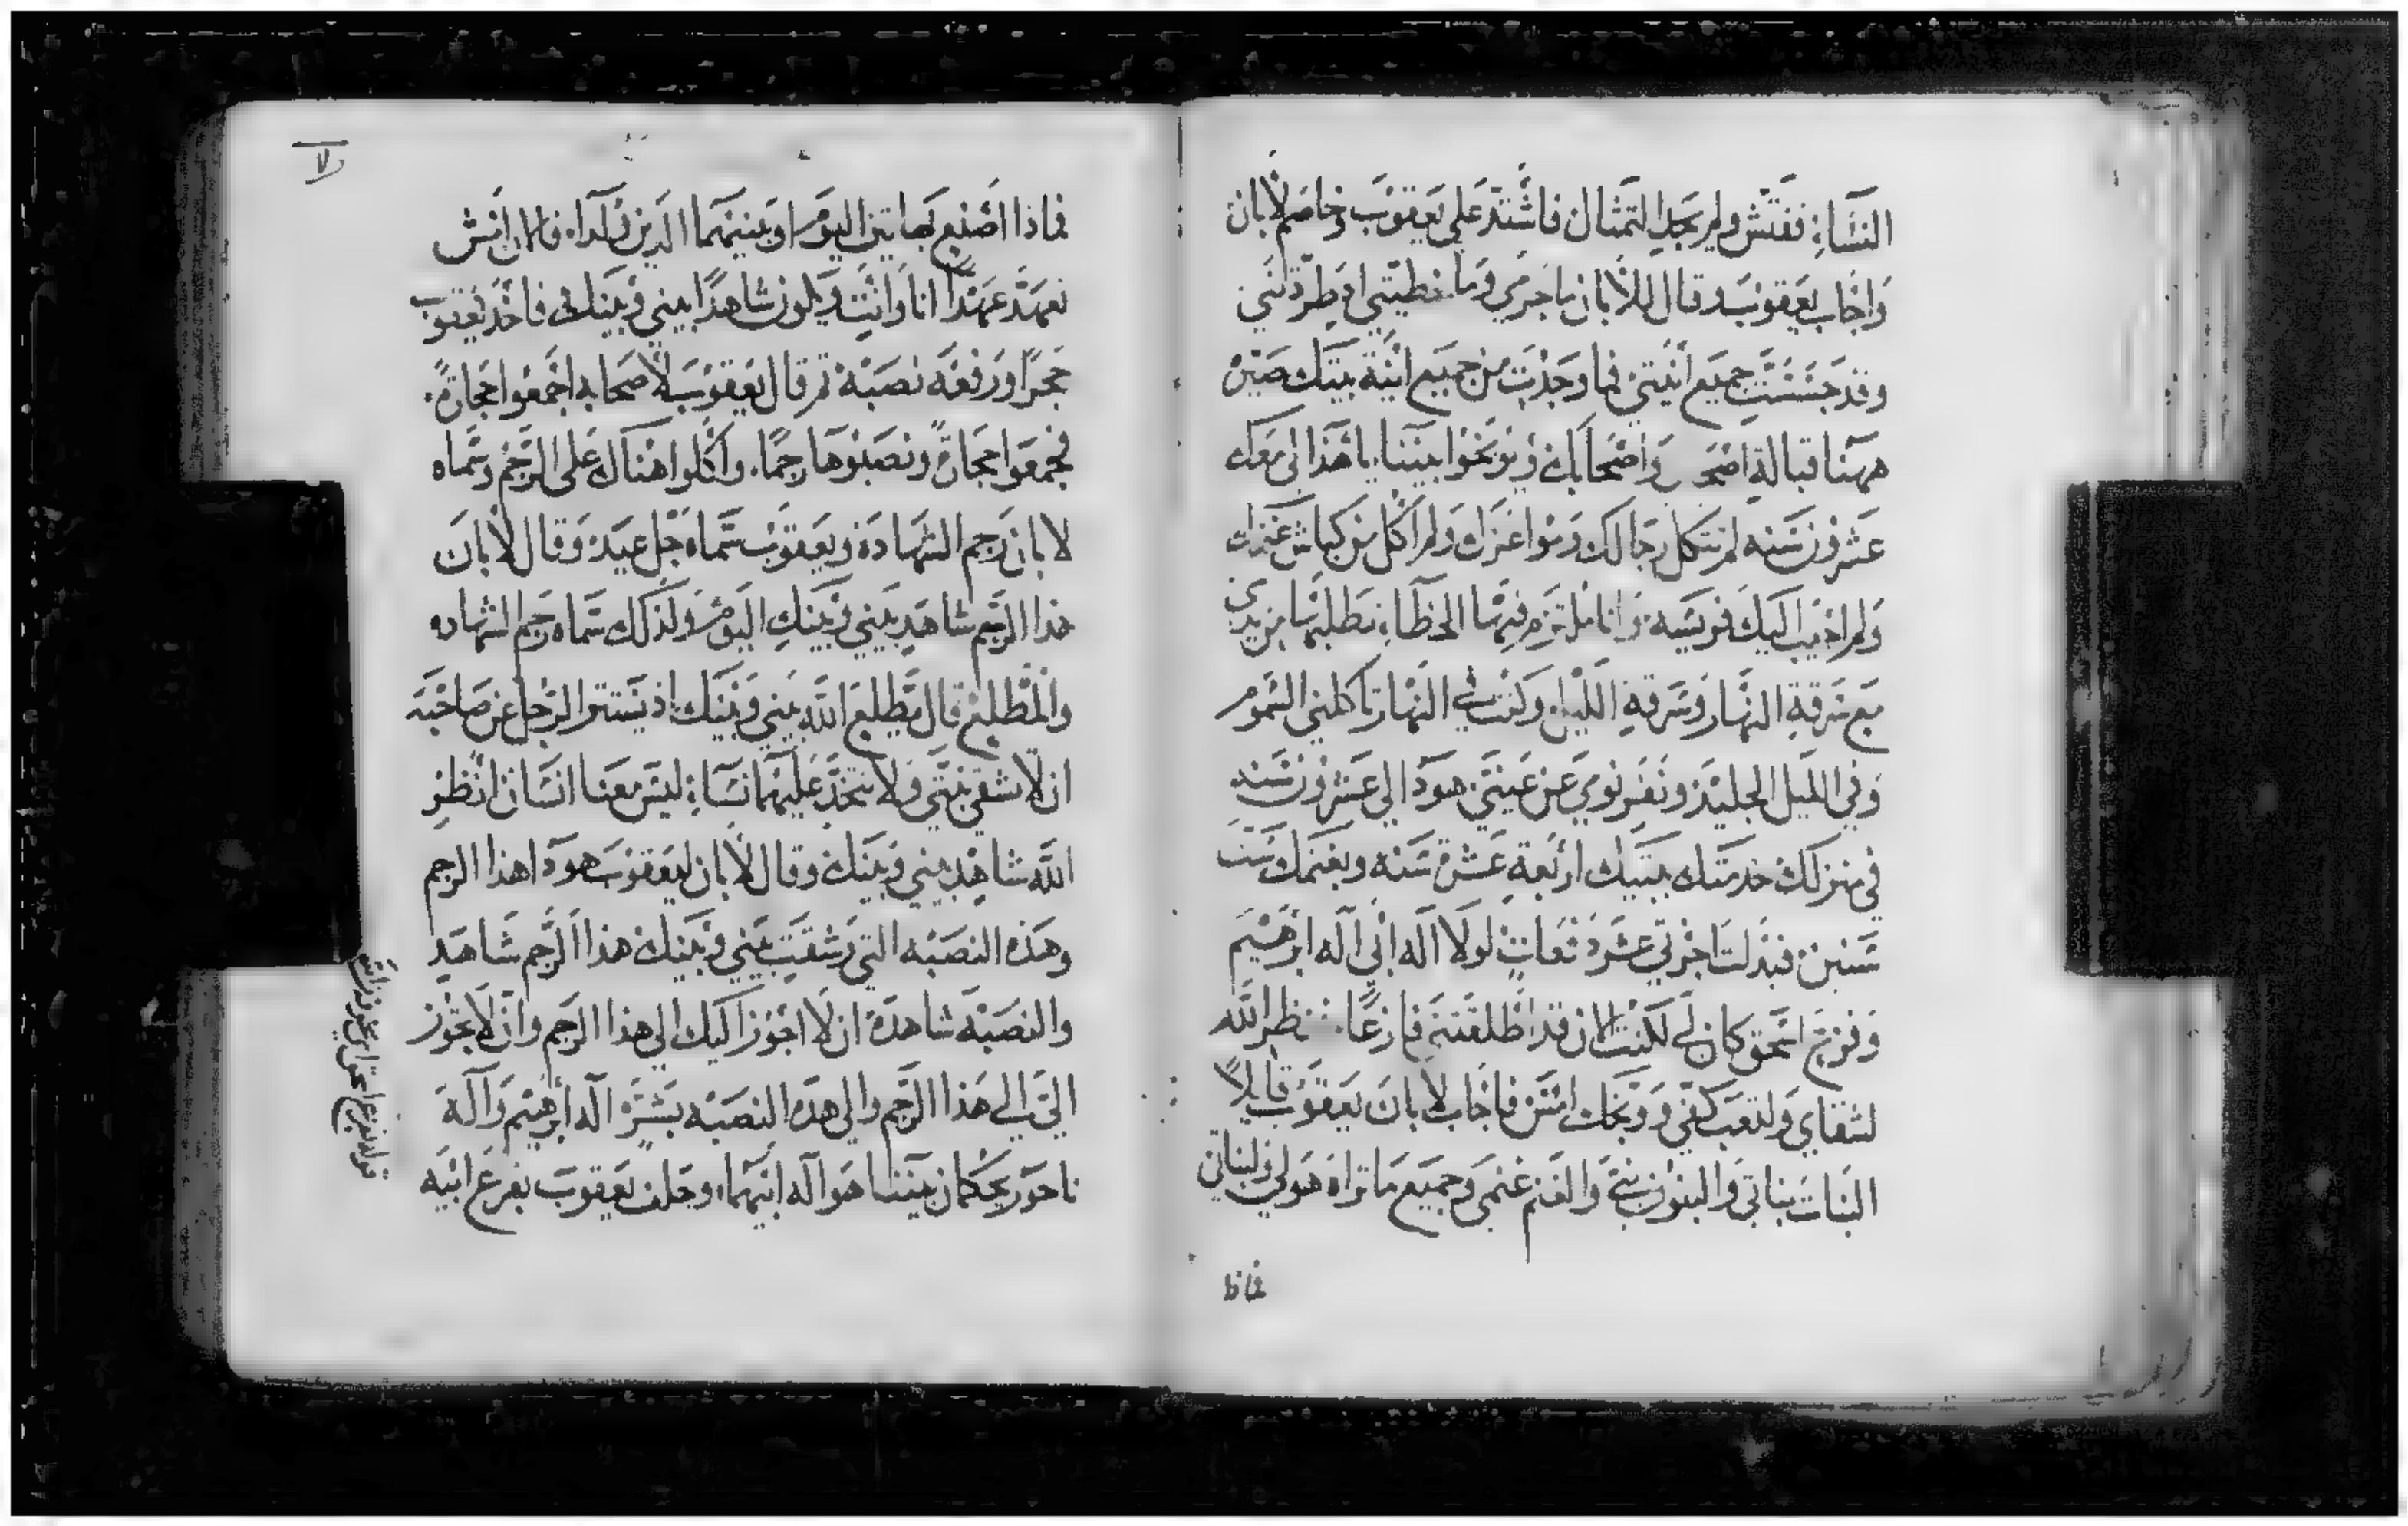 النسَاءِ ففتش ولم يجد التمثال فاشتد علي يعقوب وخاصم لابان
وَاجَاب يعقوب وقال للابان ما جرمي وما خطيتي اذ طردتني
وقد جسست جميع انيتي فما وجدت من جميع انية بيتك صير
ههنا قبالة اصحابي وَاصحابك ويوبخوا بيننا، يا هذا لي معك
عشرون سنه لم تثكل رجالك ومواعزك ولم اكل من كباش غنمك
ولم اجيب اليك فريسه وانا ملتزم فيها الخطاء تطلبها من يدي
مع سرقة النهار وسرقة الليل وكنت في النهار تاكلني السموم
وفي الليل الجليد ونفر نومي عن عيني هودا لي عشرون سنه
في منزلك خدمتك ببنتيك اربعة عشرة سنه وبغنمك ست
سنين فبدلت اجرتي عشرة دفعات لولا اله ابي اله ابرهيم
وفزع اسحق كان لي لكنت الان قد اطلقتني فارغا نظر الله
لشقاي ولتعب كفي ووبخك امس فاجاب لابان يعقوب قايلاً
البنات بناتي والبنون بني والغنم غنمي وجميع ما تراه هو لي ولبناتي
فماذا
ولا
فماذا اصنع بهاتين اليوم او ببنيهما الذين ولدا. فالان امش
نعهد عهداً انا وانت ويكون شاهداً بيني وبينك فاخذ يعقوب
حجراً ورفعه نصبة ثم قال يعقوب لاصحابه اجمعوا حجارةً.
فجمعوا حجارةً ونصبوها رجماً. واكلوا هناك على الرجم وسماه
لابان رجم الشهادة ويعقوب سماه جل عيد وقال لابان
هذا الرجم شاهد بيني وبينك اليوم ولذلك سماه رجم الشهاده
والمطلع قال يطلع الله بيني وبينك اذ يستتر الرجل عن صاحبه
ان لا تشقي بنتي ولا تتخذ عليهما نساءِ ليس معنا انسان انظر
الله شاهد بيني وبينك وقال لابان ليعقوب هودا هذا الرجم
وهذه النصبه التي رشقت بيني وبينك هذا الرجم شاهد
والنصبة شاهدة ان لا اجوز اليك الي هذا الرجم وان لا تجوز
الي الي هذا الرجم والي هذه النصبه بشرّ اله ابرهيم واله
ناحور يحكمان بيننا هو اله ابيهما، وحلف يعقوب بفزع ابيه